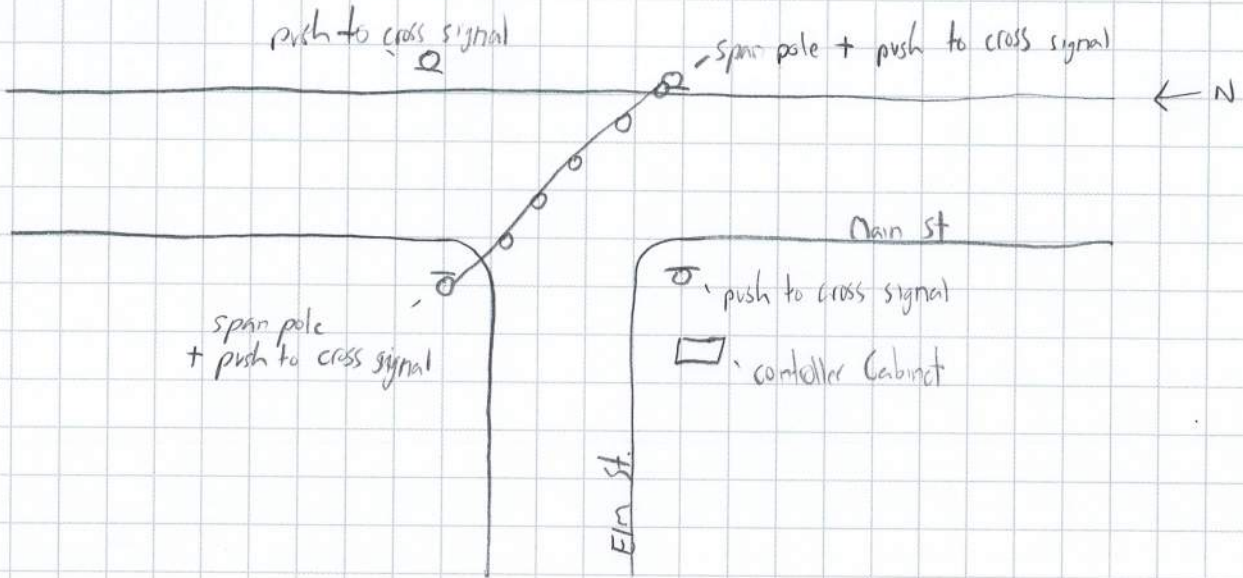 push to cross signal
span pole + push to cross signal
← N
Main St
push to cross signal
span pole
+ push to cross signal
contoller Cabinet
Elm St.